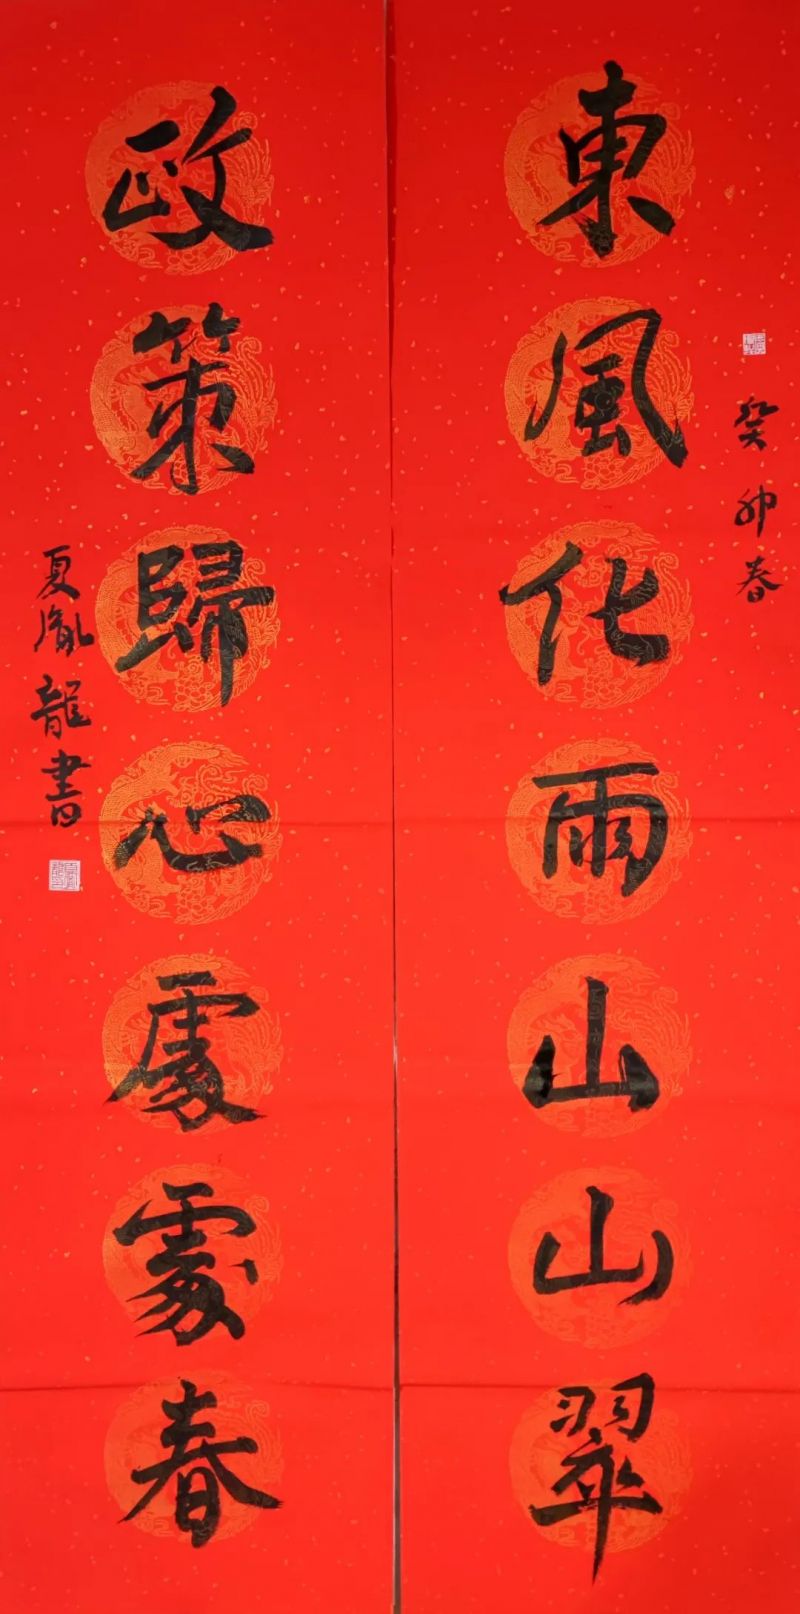 東風化雨山山翠
癸卯春
政策歸心處處春
夏胤龍書